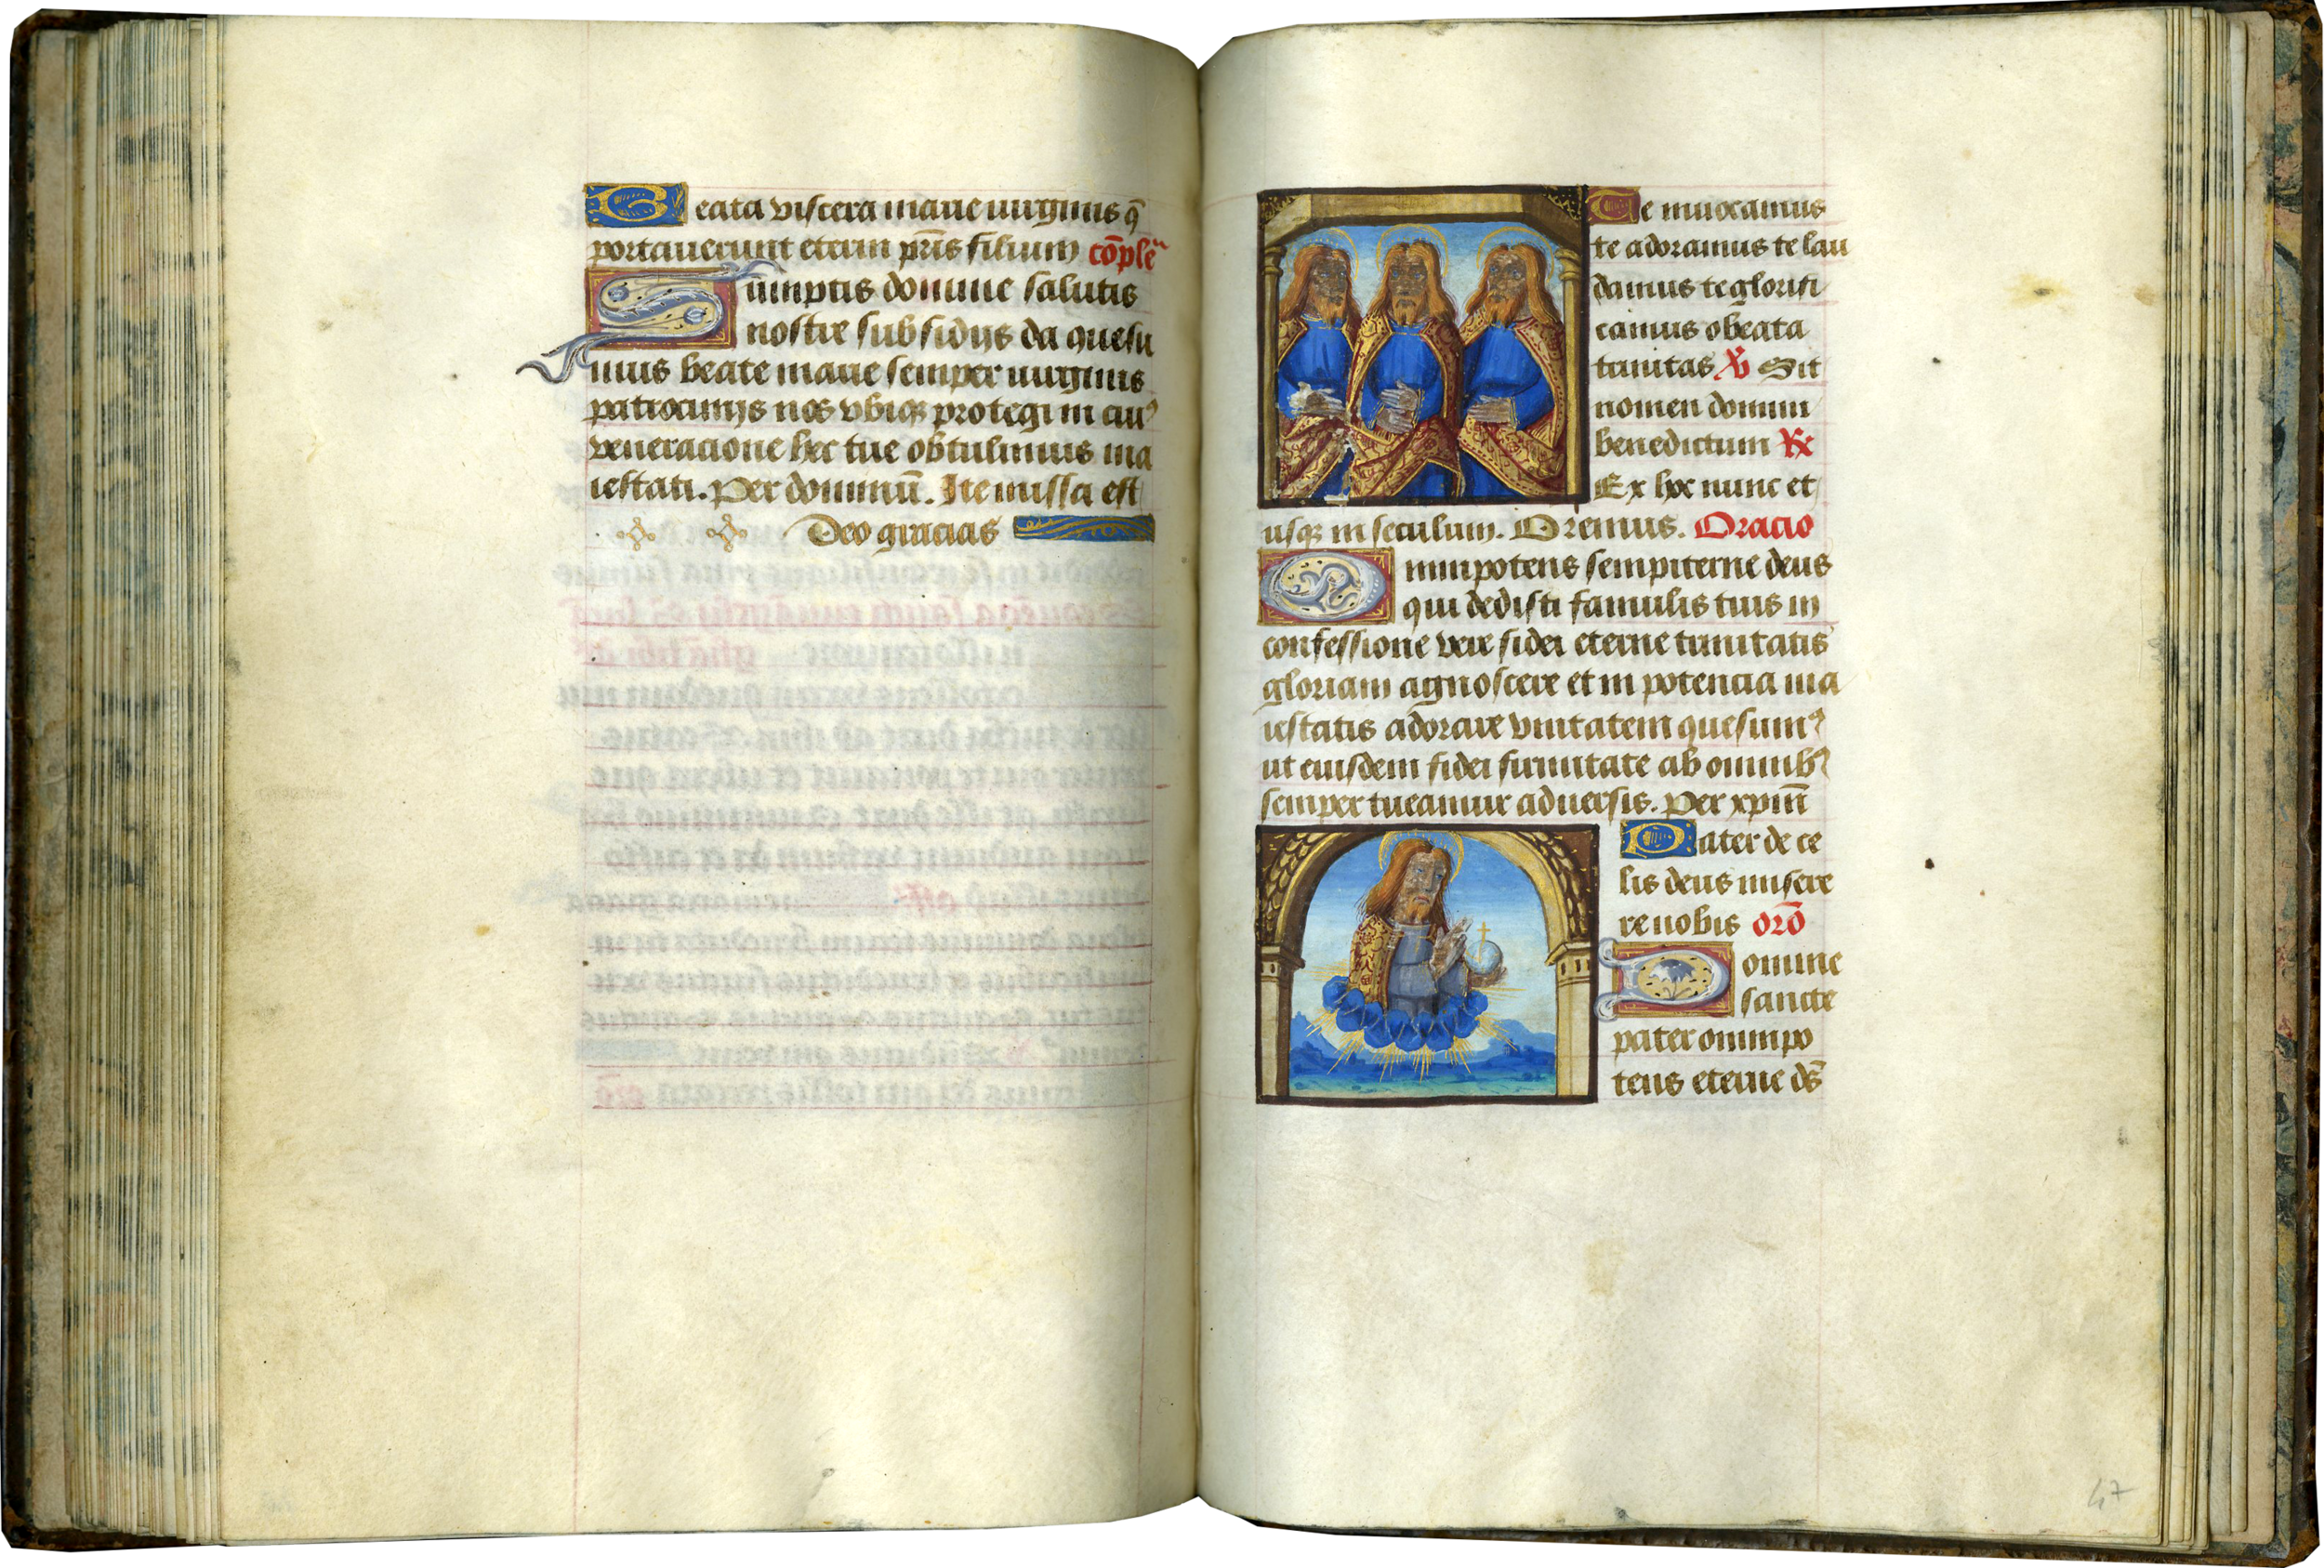 Beata viscera marie virginis q̄
portauerunt eterni pr̄is filium cōple͞
Sumptis domine salutis
nostre subsidijs da quesu
mus beate marie semper virginis
patrocinijs nos vbiqꝫ protegi in cuiꝰ
veneracione hec tue obtulimus ma
iestati. Per dominū. Ite missa est
Deo gracias
Te inuocamus
te adoramus te lau
damus te glorifi
camus o beata
trinitas ℣ Sit
nomen domini
benedictum ℟
Ex hoc nunc et
usqꝫ in seculum. Oremus. Oracio
Omnipotens sempiterne deus
qui dedisti famulis tuis in
confessione vere fidei eterne trinitatis
gloriam agnoscere et in potencia ma
iestatis adorare vnitatem quesumꝰ
ut eiusdem fidei firmitate ab omnibꝰ
semper tueamur aduersis. Per xp̄m̄
Pater de ce
lis deus misere
re nobis orō
Domine
sancte
pater omnipo
tens eterne ds̄
47